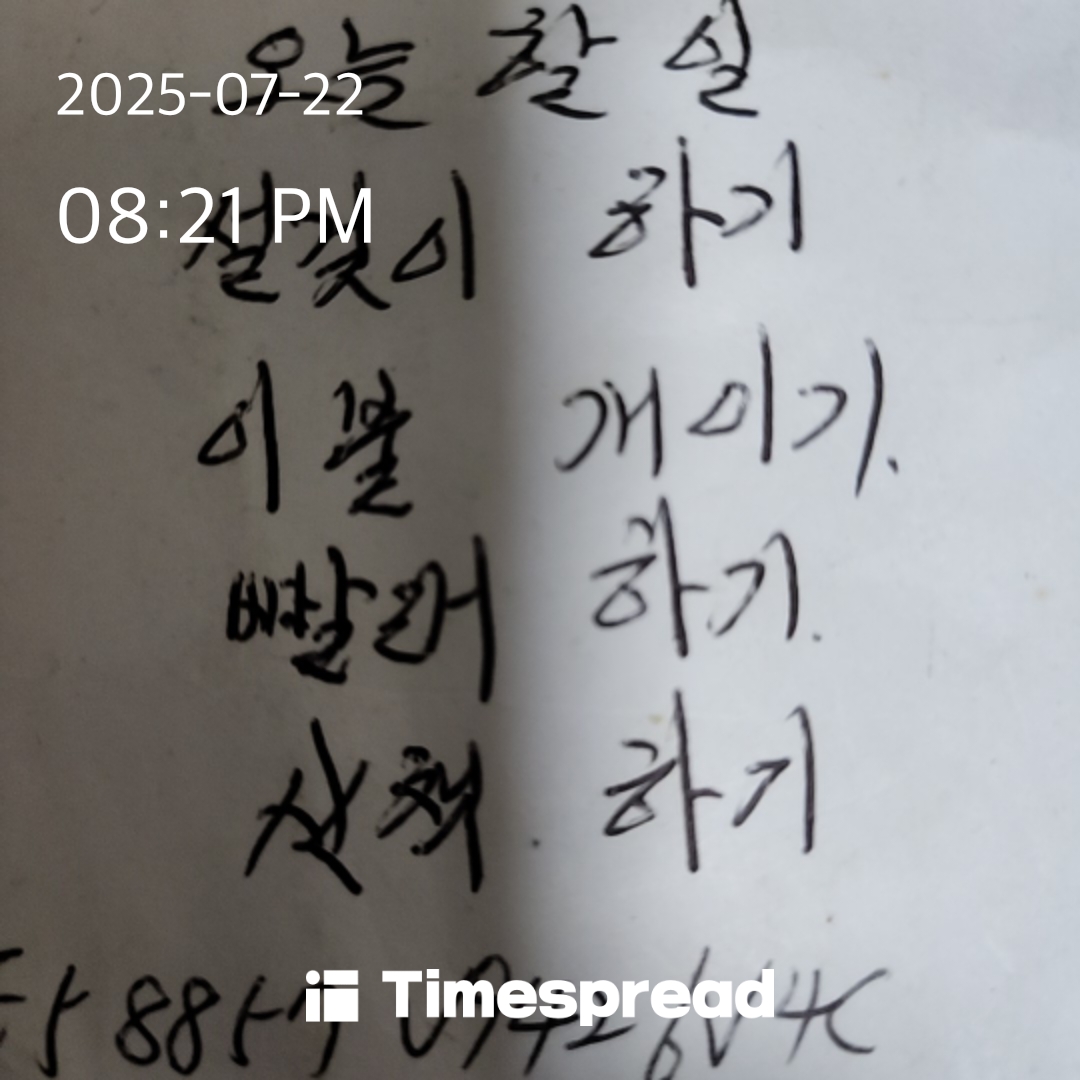 오늘 할 일
2025-07-22
설겆이 하기
08:21 PM
이불 개이기.
빨래 하기.
산책. 하기
Timespread